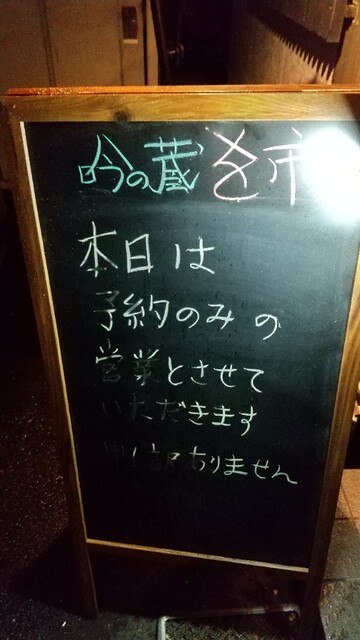 吟の蔵 を市
本日は
予約のみの
営業とさせて
いただきます
申し訳ありません